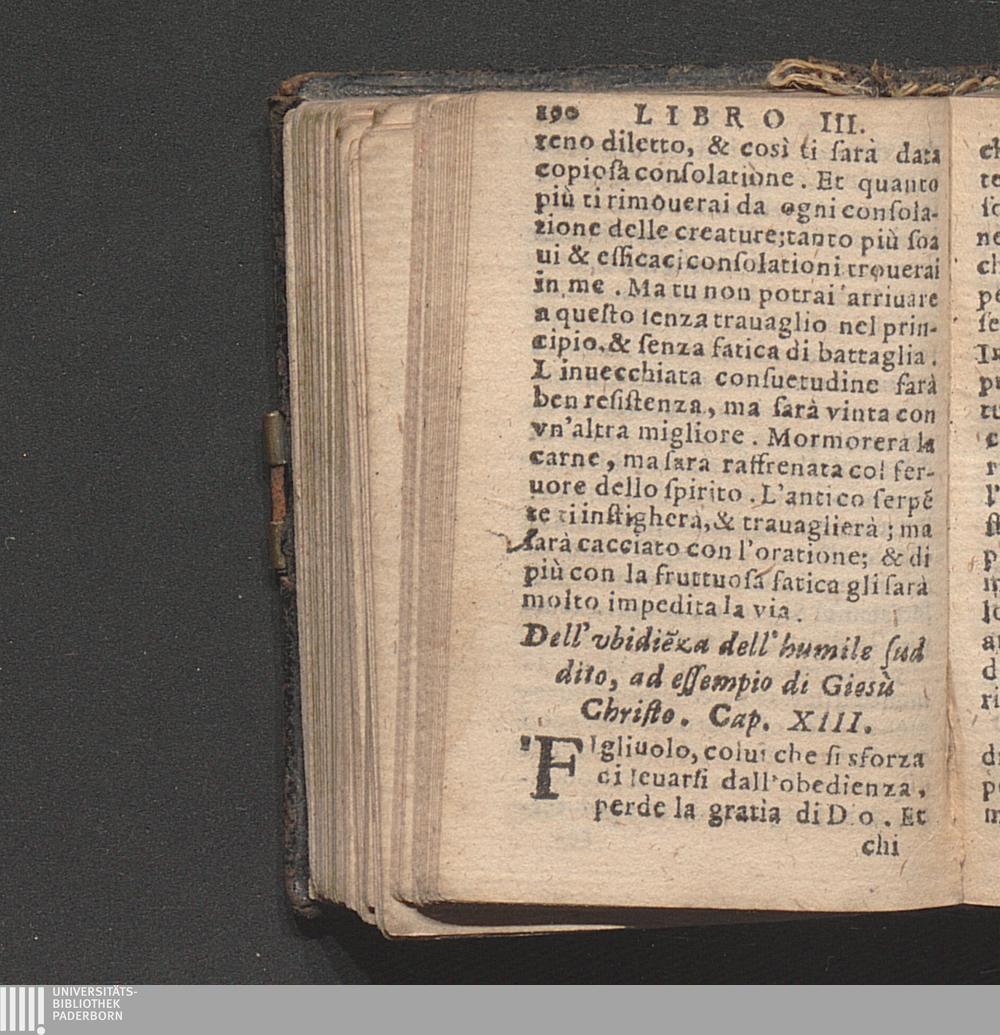 190 LIBRO III.
reno diletto, & così ti ſarà data
copioſa conſolatione. Et quanto
più ti rimouerai da ogni conſola-
zione delle creature; tanto più ſoa
ui & efficaci conſolationi trouerai
in me. Ma tu non potrai arriuare
a queſto ſenza trauaglio nel prin-
cipio, & ſenza fatica di battaglia.
L'inuecchiata conſuetudine ſarà
ben reſiſtenza, ma ſarà vinta con
vn'altra migliore. Mormorerà la
carne, ma ſara raffrenata col fer-
uore dello ſpirito. L'antico ſerpē
te ti inſtigherà, & trauaglierà; ma
ſarà cacciato con l'oratione; & di
più con la fruttuoſa fatica gli ſarà
molto impedita la via.
Dell'vbidiēza dell'humile ſud
dito, ad eſſempio di Giesù
Chriſto. Cap. XIII.
FIgliuolo, colui che ſi sforza
di leuarſi dall'obedienza,
perde la gratia di D o. Et
chi
UNIVERSITÄTS-
BIBLIOTHEK
PADERBORN